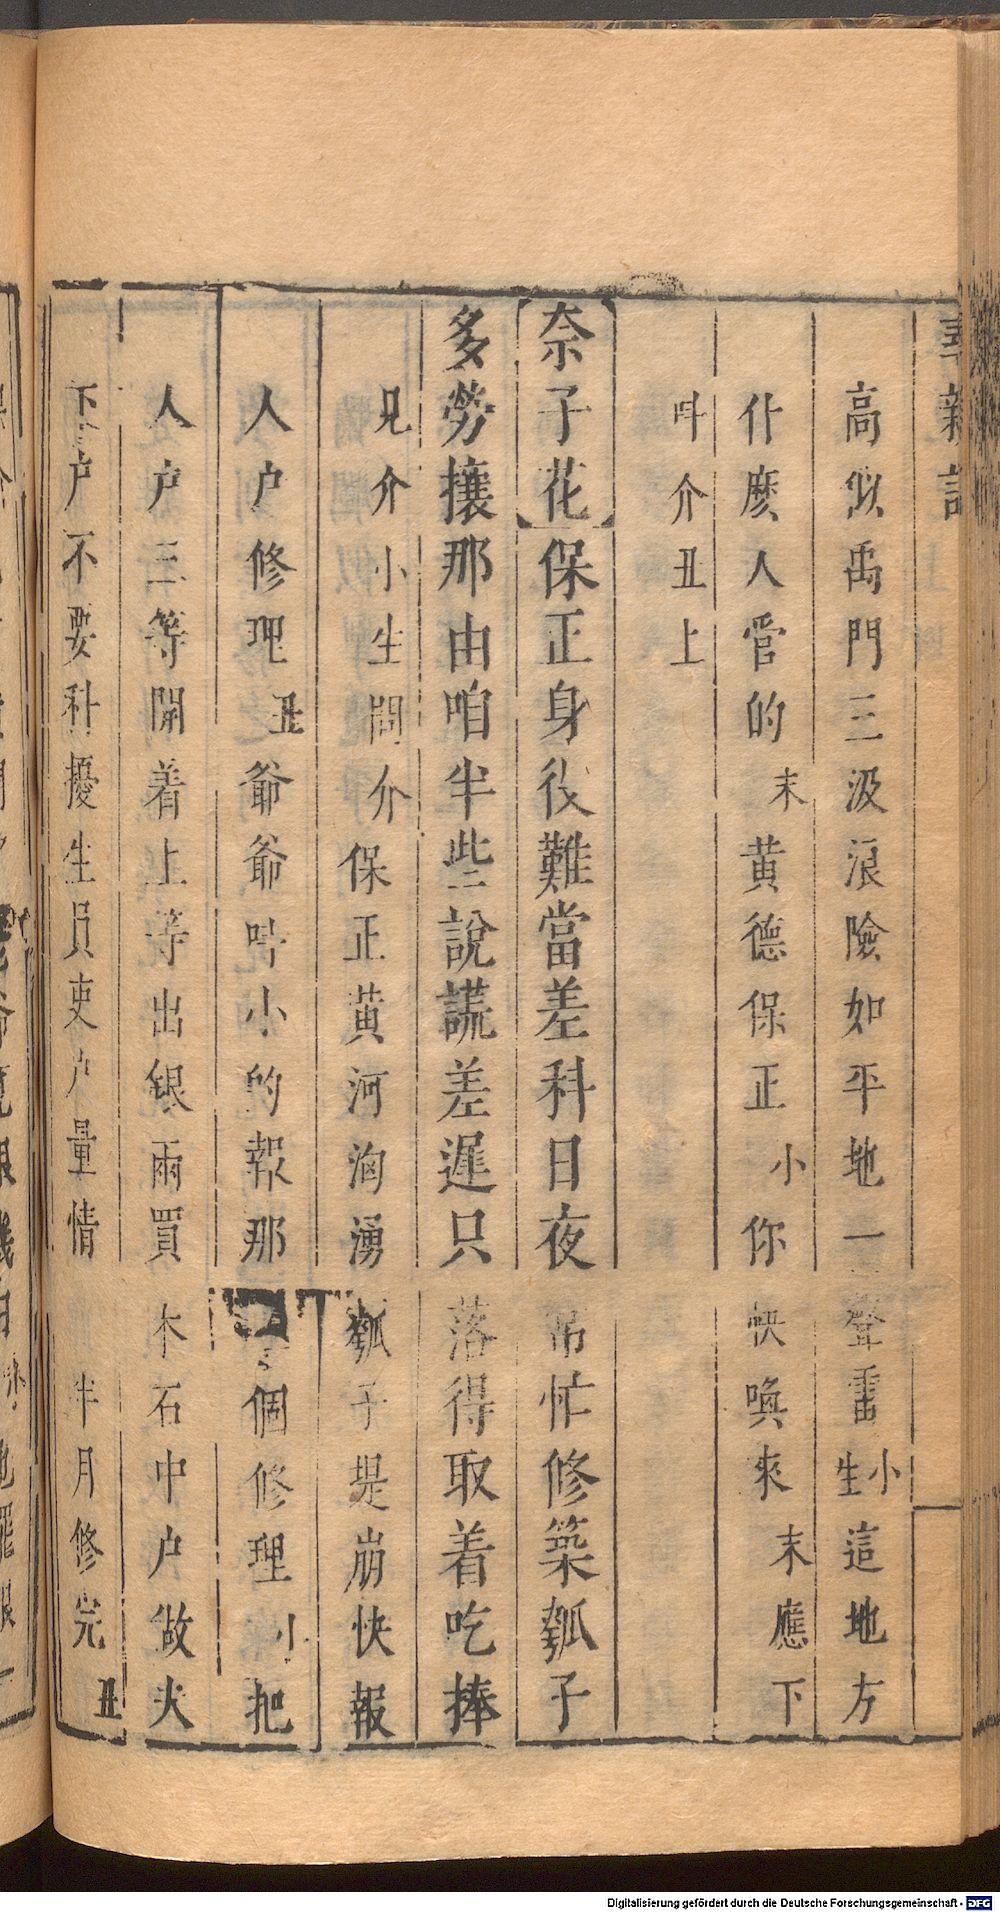 高似禹門三汲浪險如平地一聲雷小生這地方
什麽人管的末黃德保正小你快喚來末應下
呌介丑上
奈子花保正身役難當差科日夜常忙修築瓠子
多勞攘那由咱半些說謊差遲只落得取着吃捧
見介小生問介保正黃河洶湧瓠子堤崩快報
人户修理丑爺爺呌小的報那個修理小把
人户三等開着上等出銀兩買木石中户做夫
下户不要科擾生員吏户量情半月修完丑
Digitalisierung gefördert durch die Deutsche Forschungsgemeinschaft - DFG